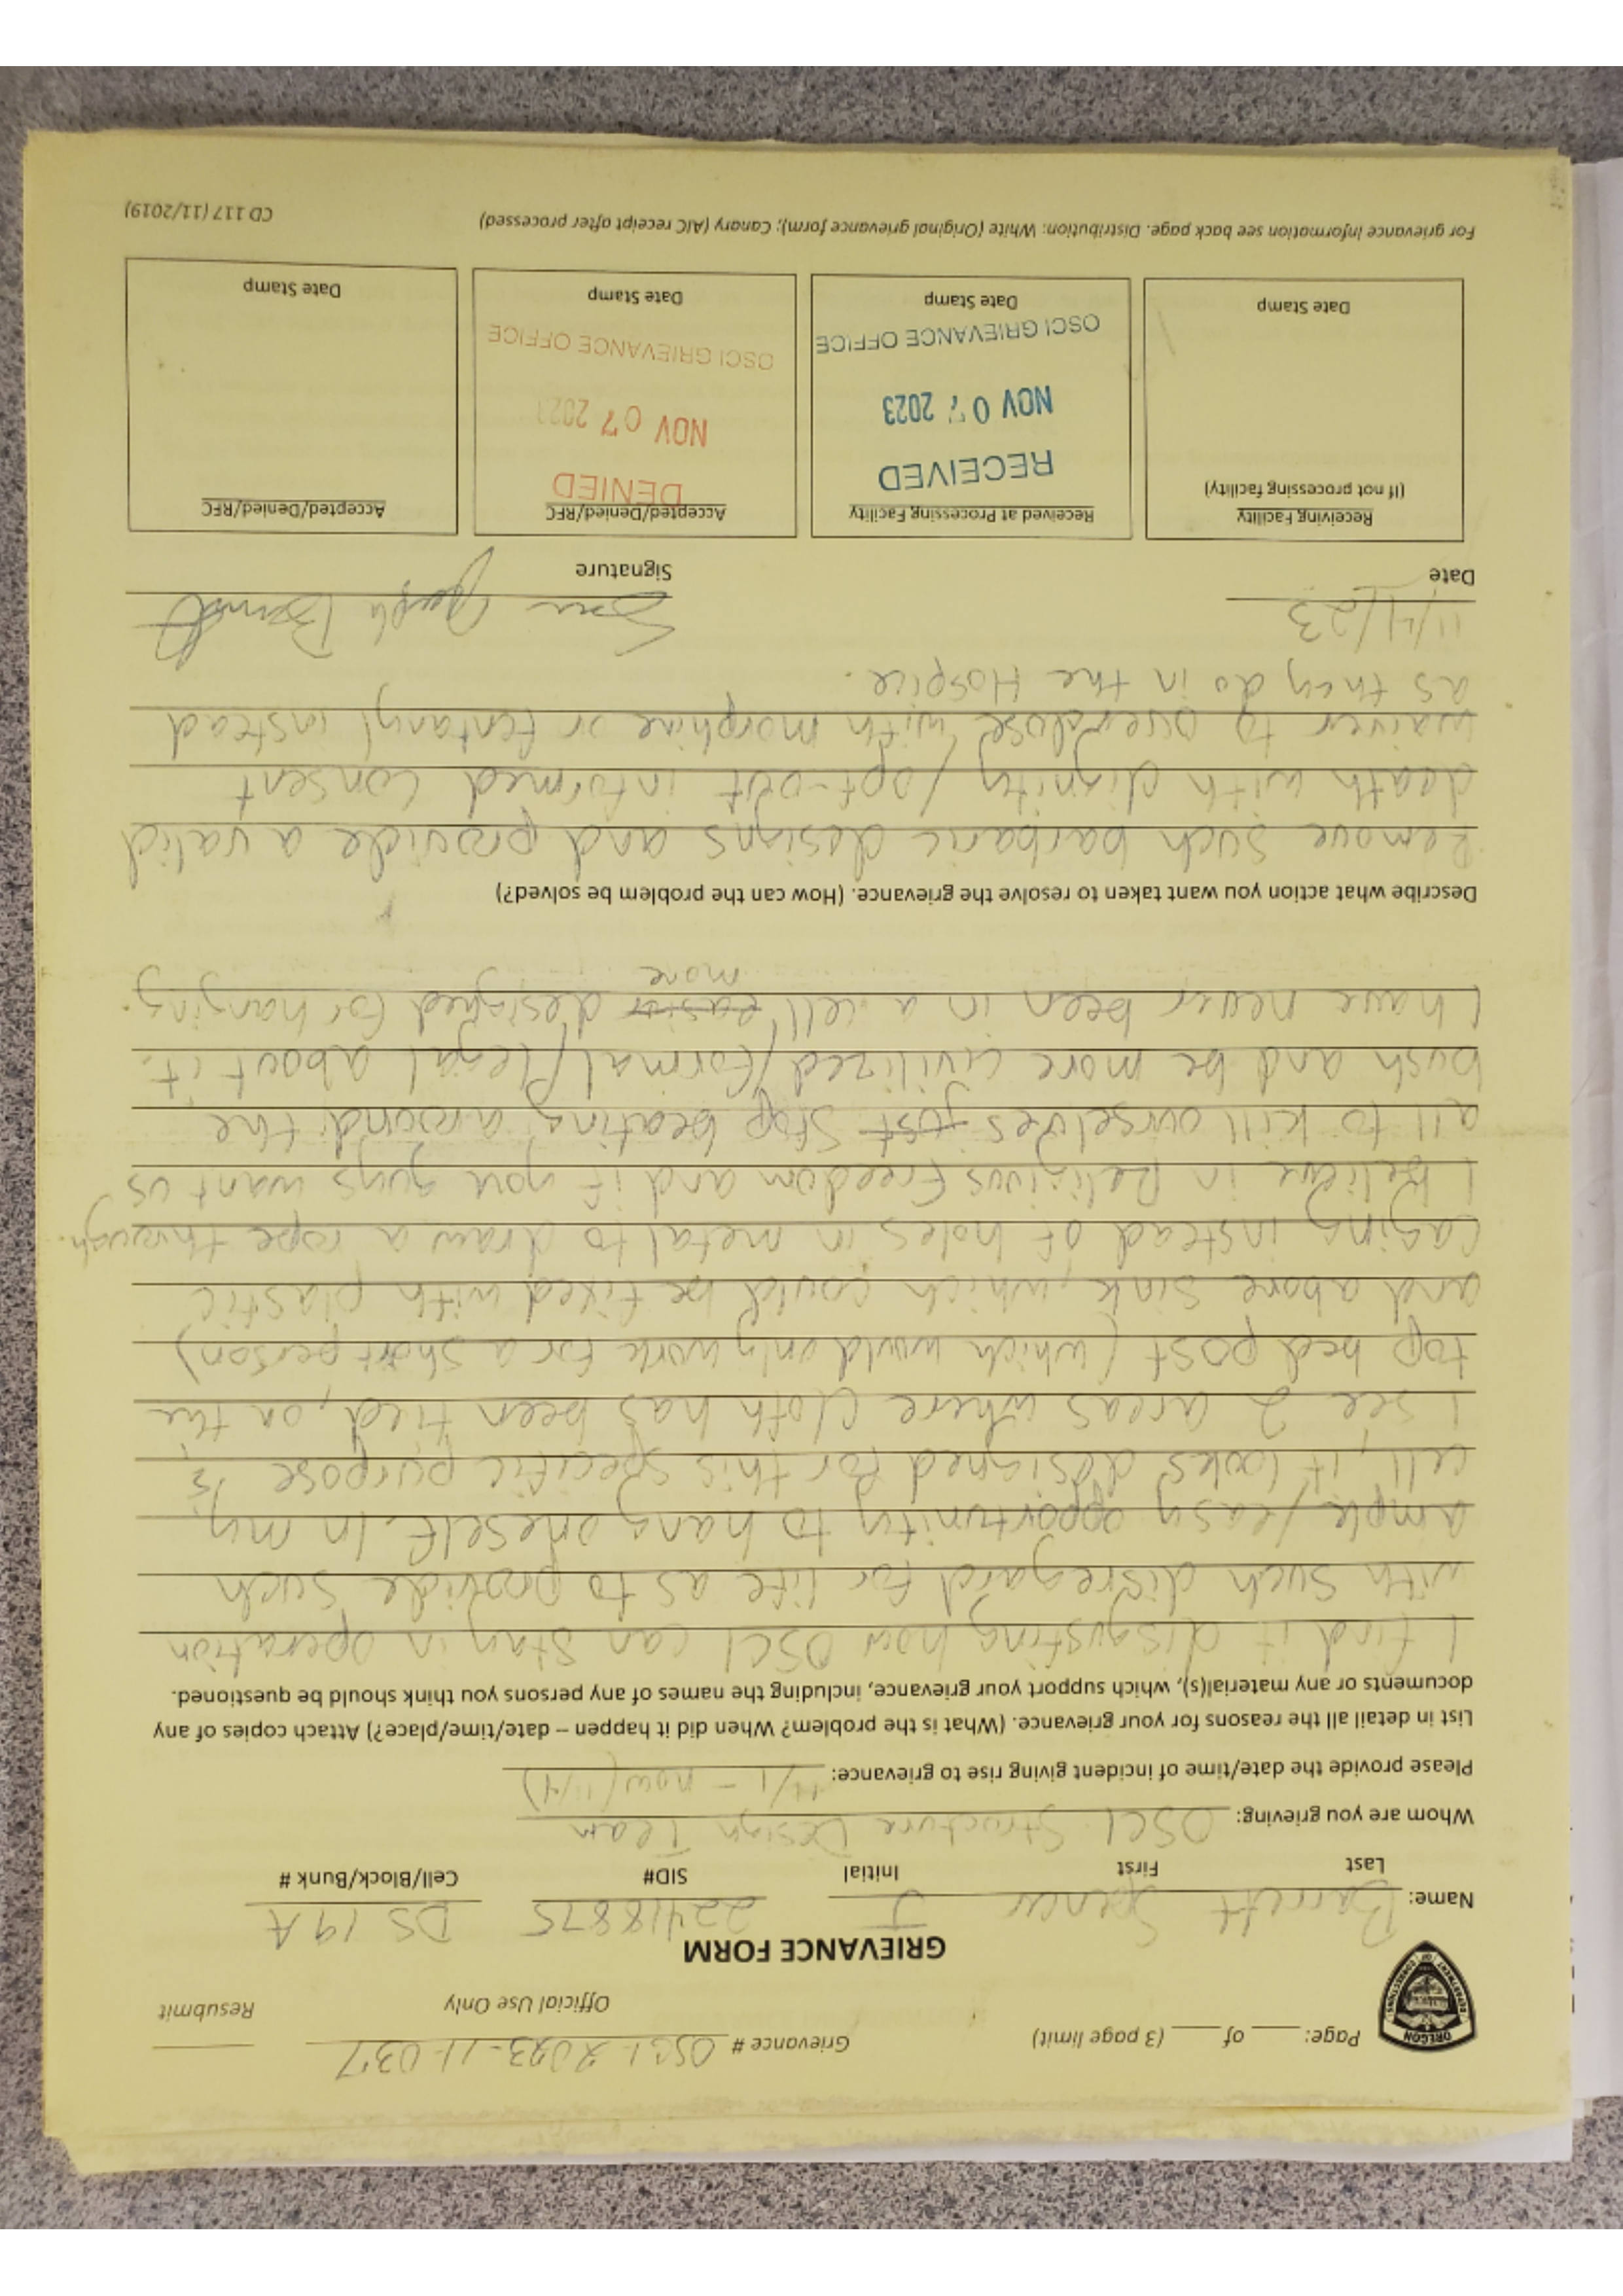 Page: ____ of ____ (3 page limit) Grievance # OSCI-2023-11-037 ____
Official Use Only Resubmit
OREGON
DEPARTMENT OF CORRECTIONS
GRIEVANCE FORM
Name: Barrett Spencer J 22418875 DS 19A
Last First Initial SID# Cell/Block/Bunk #
Whom are you grieving: OSCI Structure Design Team
Please provide the date/time of incident giving rise to grievance: 11/1 - now (11/4)
List in detail all the reasons for your grievance. (What is the problem? When did it happen – date/time/place?) Attach copies of any
documents or any material(s), which support your grievance, including the names of any persons you think should be questioned.
I find it disgusting how OSCI can stay in operation
with such disregard for life as to provide such
ample/easy opportunity to hang oneself. In my
cell, it looks designed for this specific purpose is,
I see 2 areas where cloth has been tied, on the
top bed post (which would only work for a short person)
and above sink, which could be fixed with plastic
casing instead of holes in metal to draw a rope through.
I believe in Religious Freedom and if you guys want us
all to kill ourselves just stop beating around the
bush and be more civilized/formal/legal about it.
I have never been in a cell easier designed for hanging.
more
Describe what action you want taken to resolve the grievance. (How can the problem be solved?)
Remove such barbaric designs and provide a valid
death with dignity/opt-out informed consent
waiver to overdose with morphine or fentanyl instead
as they do in the Hospice.
11/4/23
Date Signature
Receiving Facility
(If not processing facility)
Date Stamp
Received at Processing Facility
RECEIVED
NOV 07 2023
OSCI GRIEVANCE OFFICE
Date Stamp
Accepted/Denied/RFC
DENIED
NOV 07 2023
OSCI GRIEVANCE OFFICE
Date Stamp
Accepted/Denied/RFC
Date Stamp
For grievance information see back page. Distribution: White (Original grievance form); Canary (AIC receipt after processed) CD 117 (11/2019)